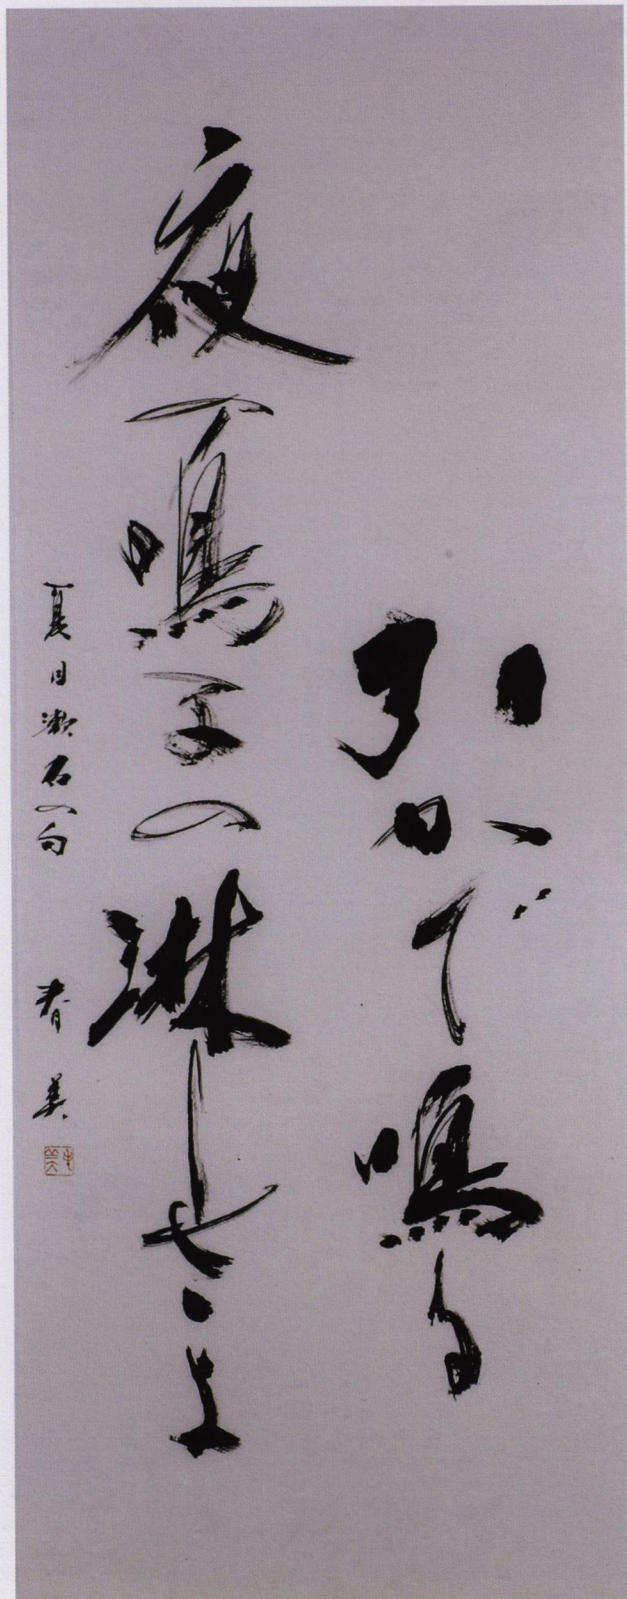 引かで鳴る
夜の鳴子の淋しさよ
夏目漱石の句 春美